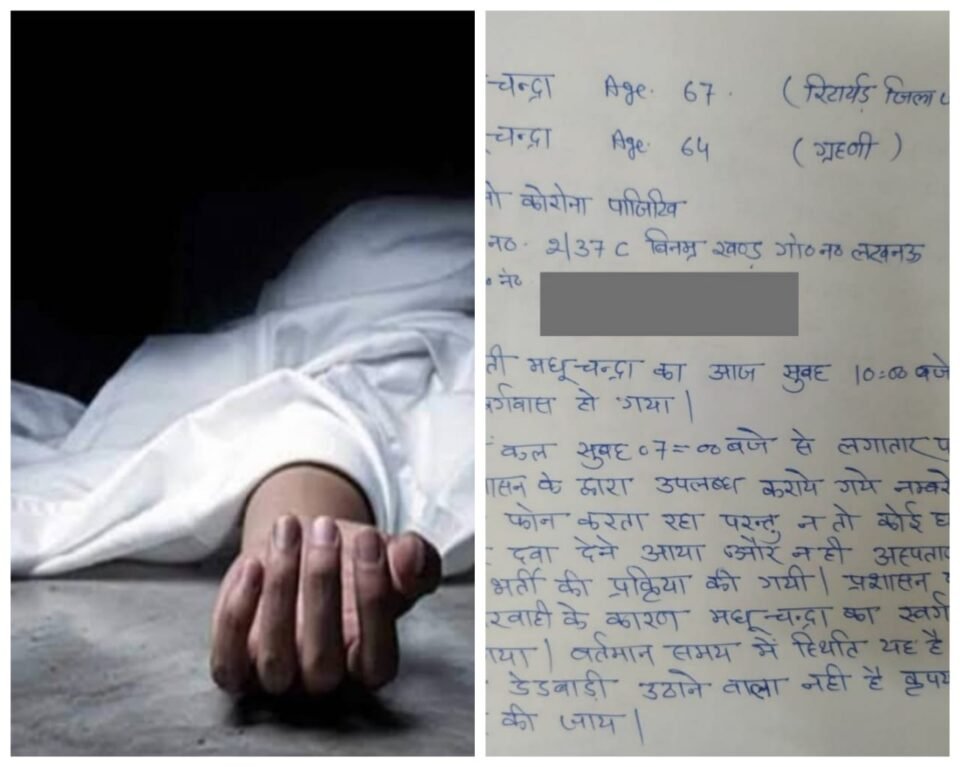 चन्द्रा Age. 67. (रिटायर्ड जिला
चन्द्रा Age. 64 (ग्रहणी)
कोरोना पाजिटिव
न० 2/37 C विनम्र खण्ड गो० न० लखनऊ
न०
मधू चन्द्रा का आज सुबह 10=00 बजे
र्गवास हो गया।
कल सुबह 07=00 बजे से लगातार
ासन के द्वारा उपलब्ध कराये गये नम्बरो
फोन करता रहा परन्तु न तो कोई घ
दवा देने आया और न ही अस्पता
भर्ती की प्रक्रिया की गयी। प्रशासन
रवाही के कारण मधू चन्द्रा का स्वर्ग
गया। वर्तमान समय में स्थिति यह है
डेडबाडी उठाने वाला नही है कृपय
की जाय।